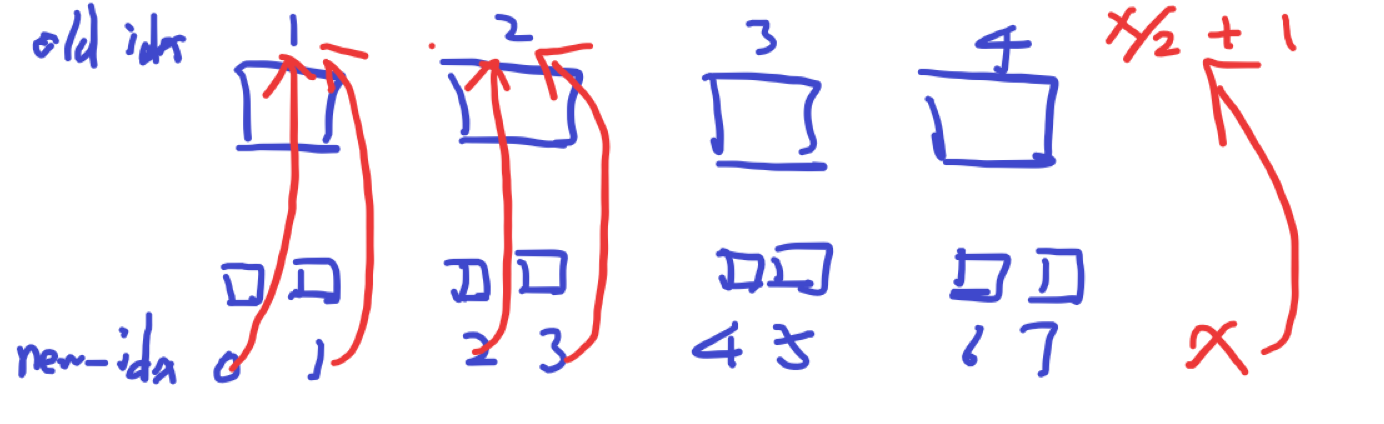 old idx 1 2 3 4 x/2 + 1
new-idx 0 1 2 3 4 5 6 7 x